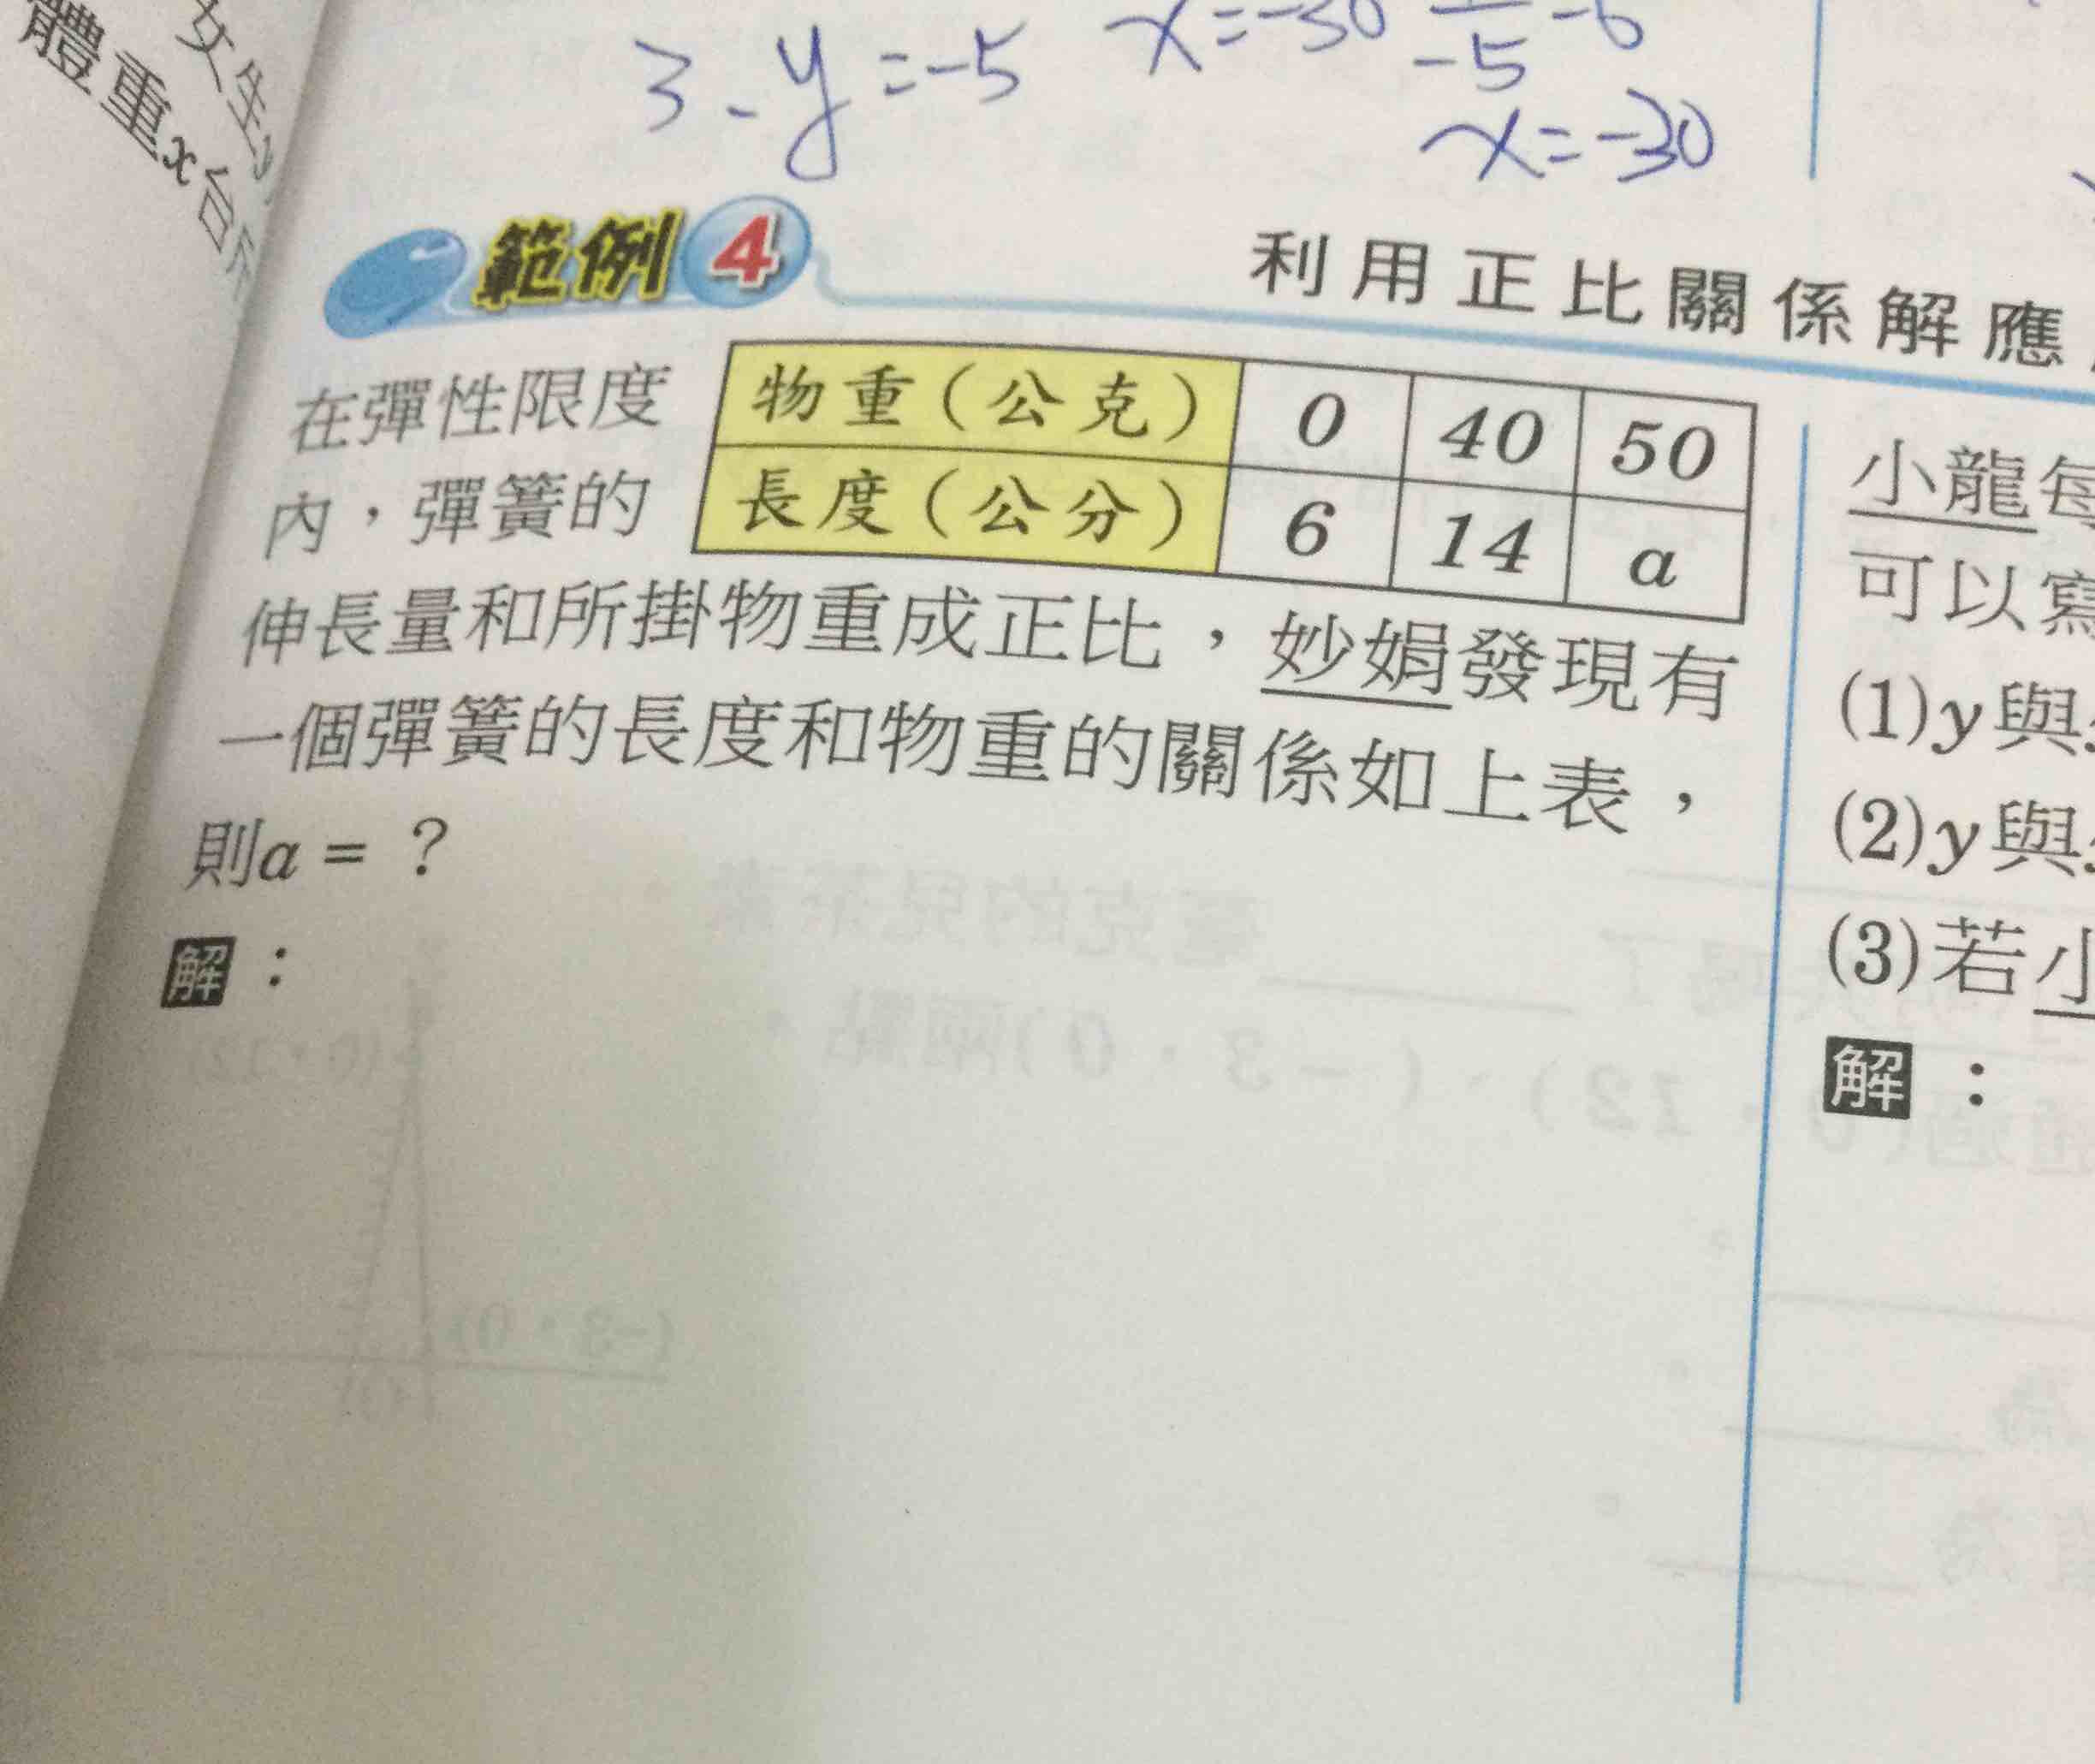 女生
體重x台
3-y=-5
x=-30
-5
x=-30
範例4
利用正比關係解應
物重(公克) 0 40 50
長度(公分) 6 14 a
在彈性限度
內，彈簧的
伸長量和所掛物重成正比，妙娟發現有
一個彈簧的長度和物重的關係如上表，
則a = ？
解：
小龍每
可以寫
(1)y與
(2)y與
(3)若小
解：